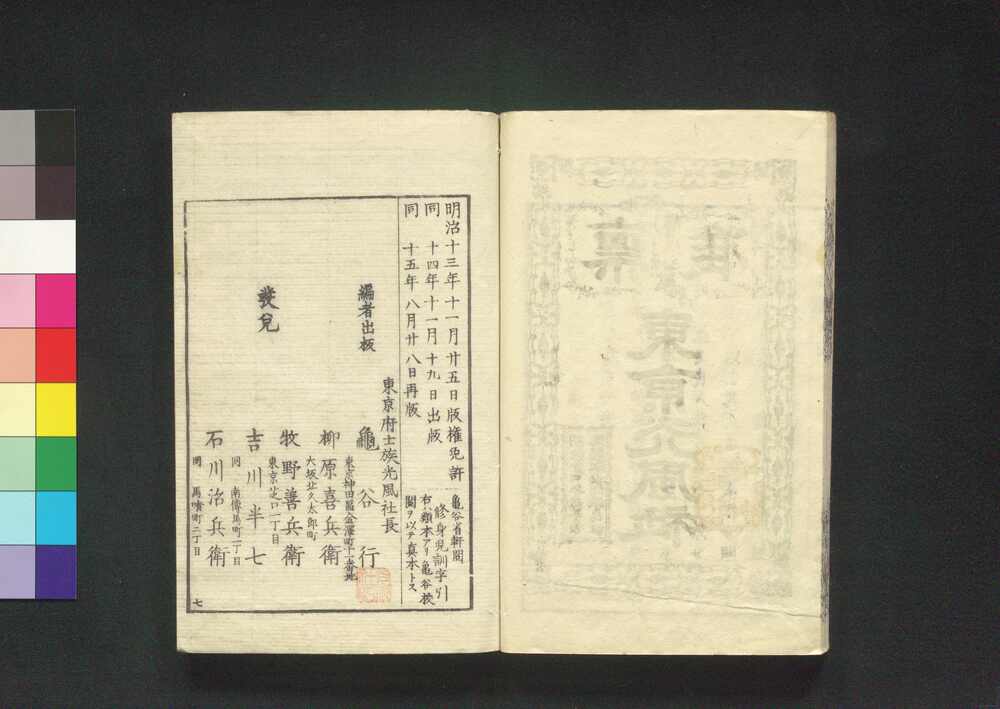 明治十三年十一月廿五日版權免許
同　十四年十一月十九日出版
同　十五年八月廿八日再版
亀谷省軒閲
修身児訓字引
右ハ類本アリ亀谷挍
閲ヲ以テ真本トス
東京府士族光風社長
編者出板　龜谷行
東京神田區金澤町十一番地
發兌
柳原喜兵衛
大坂北久太郎町
牧野善兵衛
東京芝口一丁目
吉川半七
同　南傳馬町一丁目
石川治兵衛
同　馬喰町二丁目
七
東京光風社